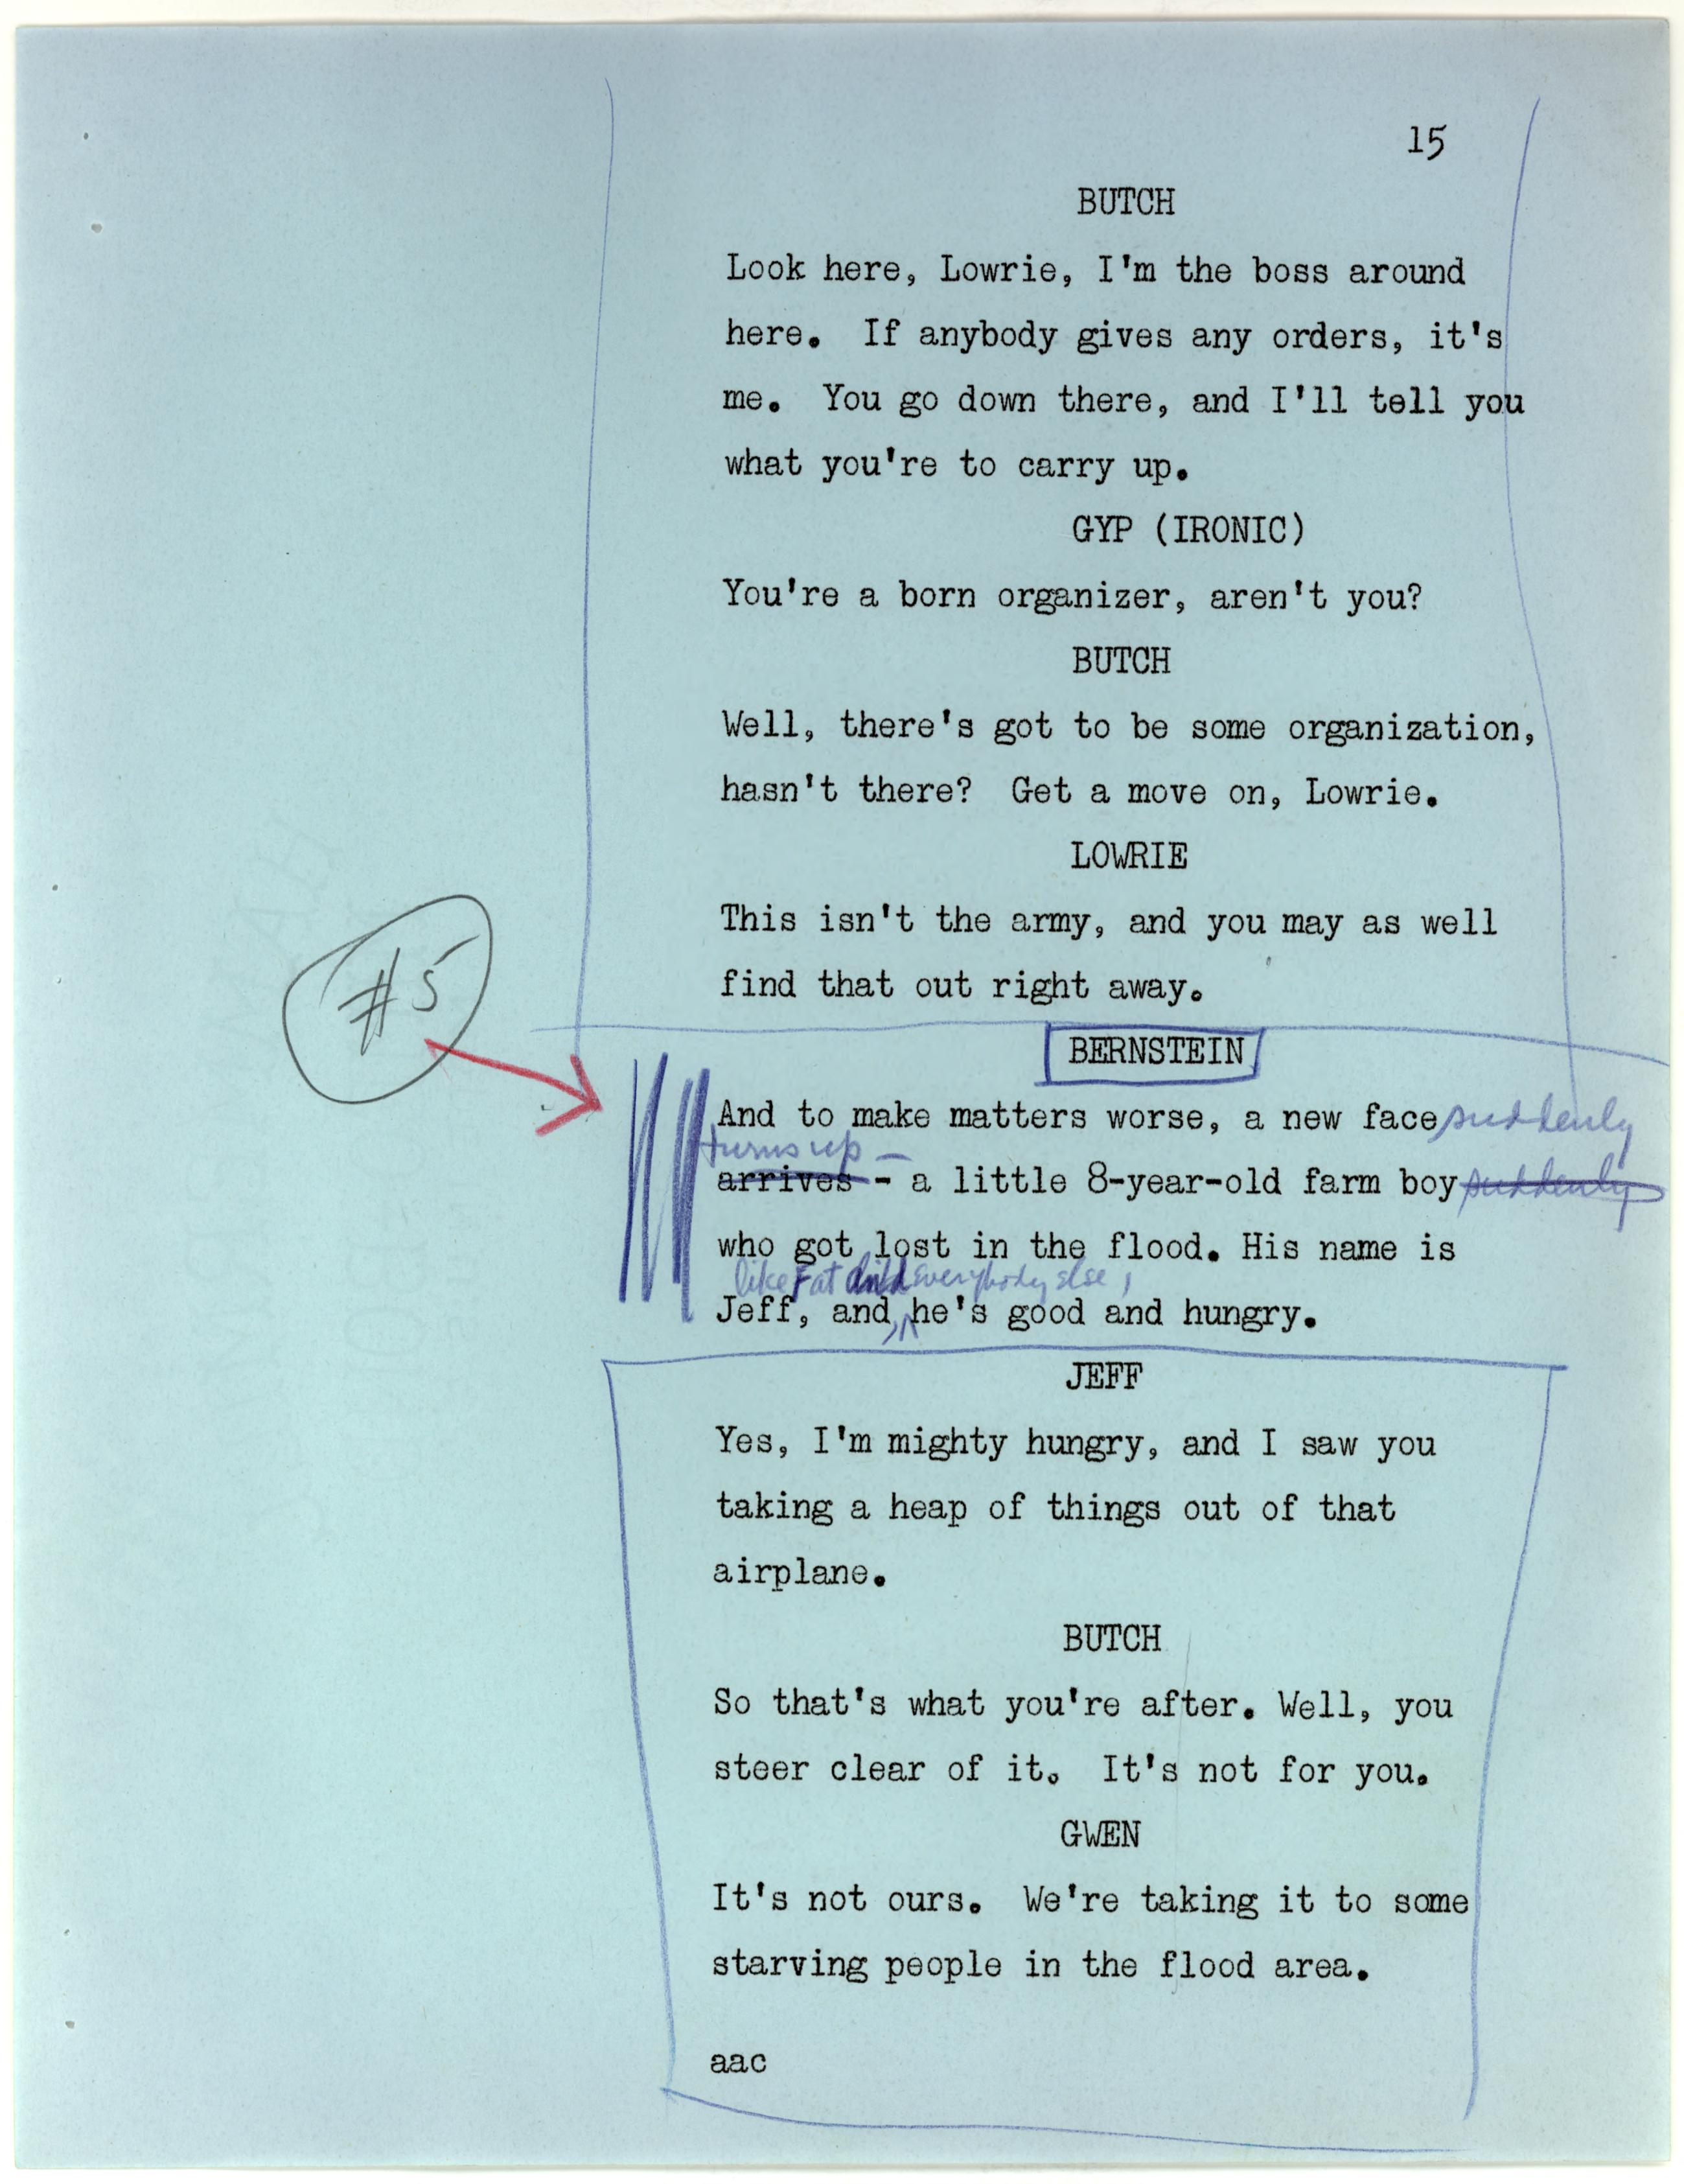 15
BUTCH
Look here, Lowrie, I'm the boss around
here. If anybody gives any orders, it's
me. You go down there, and I'll tell you
what you're to carry up.
GYP (IRONIC)
You're a born organizer, aren't you?
BUTCH
Well, there's got to be some organization,
hasn't there? Get a move on, Lowrie.
LOWRIE
This isn't the army, and you may as well
find that out right away.
#5
BERNSTEIN
And to make matters worse, a new face suddenly
turns up -
arrives - a little 8-year-old farm boy suddenly
who got lost in the flood. His name is
like everybody else,
Jeff, and, he's good and hungry.
JEFF
Yes, I'm mighty hungry, and I saw you
taking a heap of things out of that
airplane.
BUTCH
So that's what you're after. Well, you
steer clear of it. It's not for you.
GWEN
It's not ours. We're taking it to some
starving people in the flood area.
aac